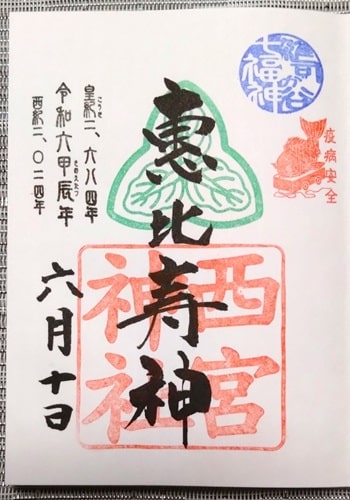 七福神
疫病安全
惠比寿神
西宮
神社
皇紀二、六八四年
こうき
令和六甲辰年
きのえたつ
西紀二、〇二四年
六月十日